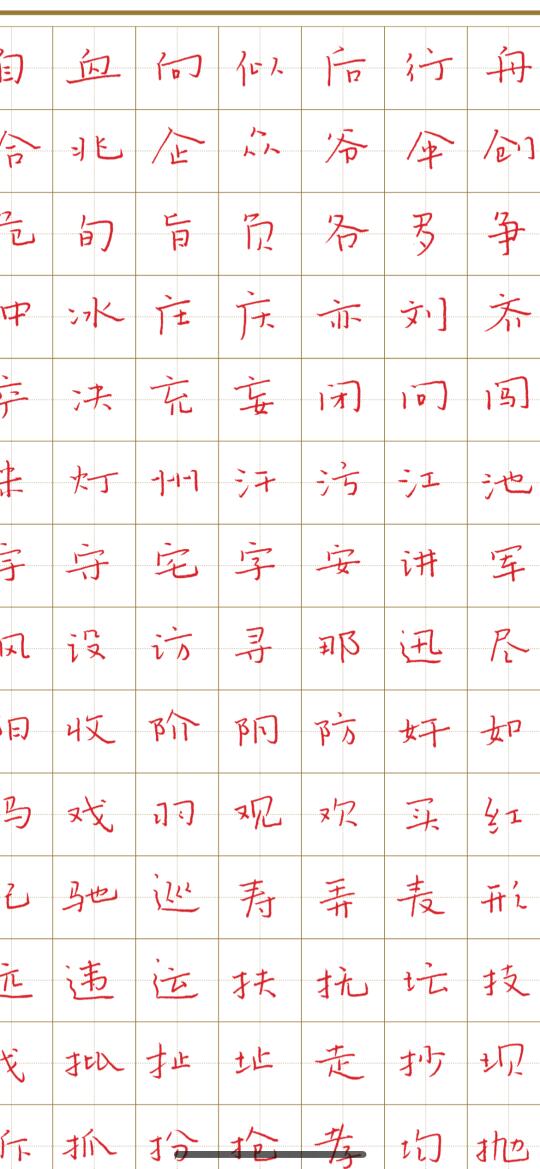 自 血 向 似 后 行 舟
合 兆 企 众 爷 伞 创
危 旬 旨 负 各 多 争
冲 冰 庄 庆 亦 刘 齐
决 充 妄 闭 问 闯
灯 州 汗 污 江 池
宇 守 宅 字 安 讲 军
设 访 寻 那 迅 尽
阳 收 阶 阴 防 奸 如
戏 羽 观 欢 买 红
驰 巡 寿 弄 麦 形
远 违 运 扶 抚 坛 技
找 批 扯 址 走 抄 坝
折 抓 扮 抢 孝 均 抛